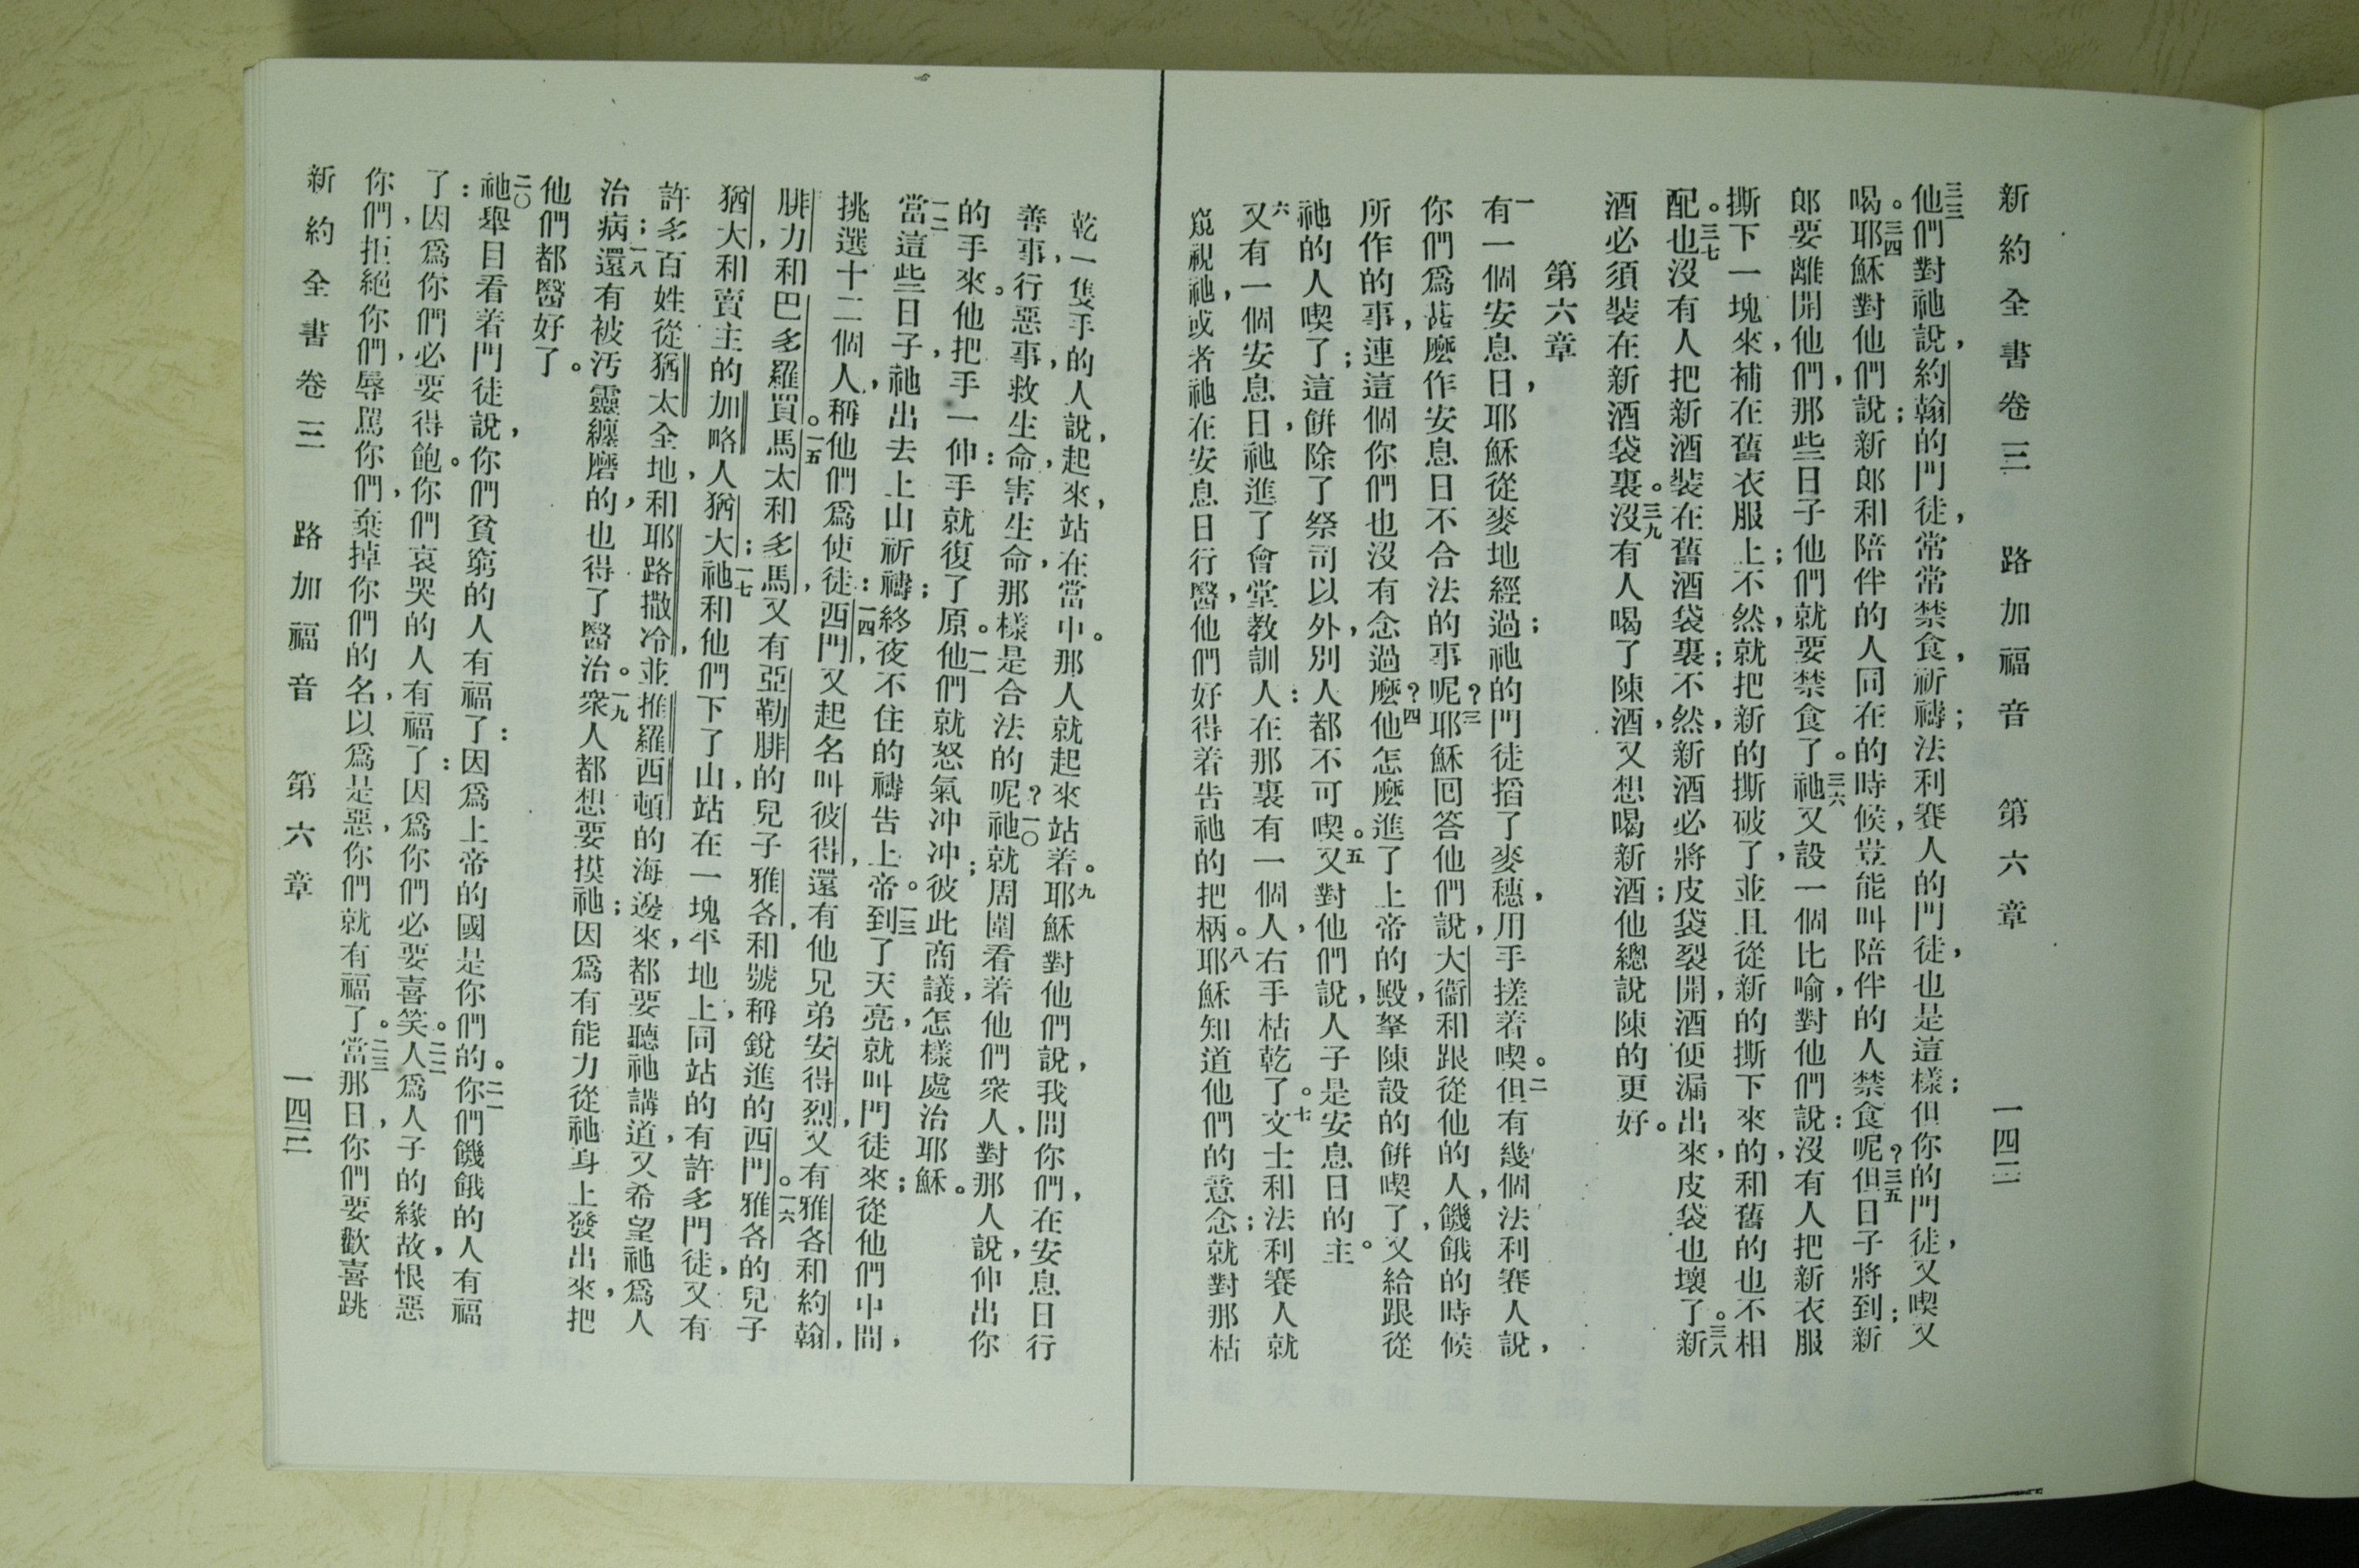 新約全書卷三 路加福音 第六章 一四二
三三他們對祂說，約翰的門徒，常常禁食，祈禱；法利賽人的門徒，也是這樣；但你的門徒，又喫又
喝。三四耶穌對他們說；新郎和陪伴的人同在的時候，豈能叫陪伴的人禁食呢？三五但日子將到；新
郎要離開他們，那些日子他們就要禁食了。三六祂又設一個比喻，對他們說：沒有人把新衣服
撕下一塊來，補在舊衣服上；不然，就把新的撕破了，並且從新的撕下來的，和舊的也不相
配。三七也沒有人把新酒裝在舊酒袋裏；不然，新酒必將皮袋裂開，酒便漏出來，皮袋也壞了。三八新
酒必須裝在新酒袋裏。三九沒有人喝了陳酒，又想喝新酒；他總說陳的更好。
第六章
一有一個安息日，耶穌從麥地經過；祂的門徒搯了麥穗，用手搓着喫。二但有幾個法利賽人說，
你們爲甚麼作安息日不合法的事呢？三耶穌回答他們說，大衞和跟從他的人，饑餓的時候
所作的事，連這個你們也沒有念過麼？四他怎麼進了上帝的殿，拏陳設的餅喫了，又給跟從
祂的人喫了；這餅除了祭司以外，別人都不可喫。五又對他們說，人子是安息日的主。
六又有一個安息日，祂進了會堂教訓人：在那裏有一個人，右手枯乾了。七文士和法利賽人就
窺視祂，或者祂在安息日行醫，他們好得着告祂的把柄。八耶穌知道他們的意念；就對那枯
乾一隻手的人說，起來，站在當中。那人就起來站着。九耶穌對他們說，我問你們，在安息日行
善事，行惡事，救生命，害生命，那樣是合法的呢？一〇祂就周圍看着他們衆人，對那人說，伸出你
的手來。他把手一伸：手就復了原。一一他們就怒氣冲冲；彼此商議，怎樣處治耶穌。
一二當這些日子，祂出去上山祈禱；終夜不住的禱告上帝。一三到了天亮，就叫門徒來；從他們中間，
挑選十二個人，稱他們爲使徒：一四西門，又起名叫彼得，還有他兄弟安得烈，又有雅各和約翰，
腓力，和巴多羅買。一五馬太和多馬，又有亞勒腓的兒子雅各，和號稱銳進的西門。一六雅各的兒子
猶大和賣主的加略人猶大；一七祂和他們下了山，站在一塊平地上，同站的有許多門徒，又有
許多百姓從猶太全地，和耶路撒冷，並推羅西頓的海邊來，都要聽祂講道，又希望祂爲人
治病；一八還有被汚靈纏磨的，也得了醫治。一九衆人都想要摸祂；因爲有能力從祂身上發出來，把
他們都醫好了。
二〇祂舉目看着門徒說，你們貧窮的人有福了：因爲上帝的國是你們的。二一你們饑餓的人有福
了：因爲你們必要得飽。你們哀哭的人有福了：因爲你們必要喜笑。二二人爲人子的緣故，恨惡
你們，拒絕你們，辱罵你們，棄掉你們的名，以爲是惡，你們就有福了。二三當那日，你們要歡喜跳
新約全書卷三 路加福音 第六章 一四三